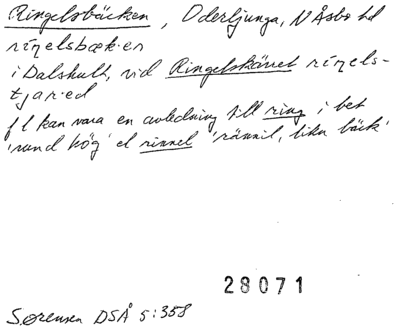 Ringelsbäcken, Oderljunga, N Åsbo hd
riŋelsbæken
i Dalshult, vid Ringelskärret riŋels-
tjared
fl kan vara en avledning till ring i bet
'rund hög' el rinnel 'rännil, liten bäck'
28071
Sørensen DSÅ 5:358